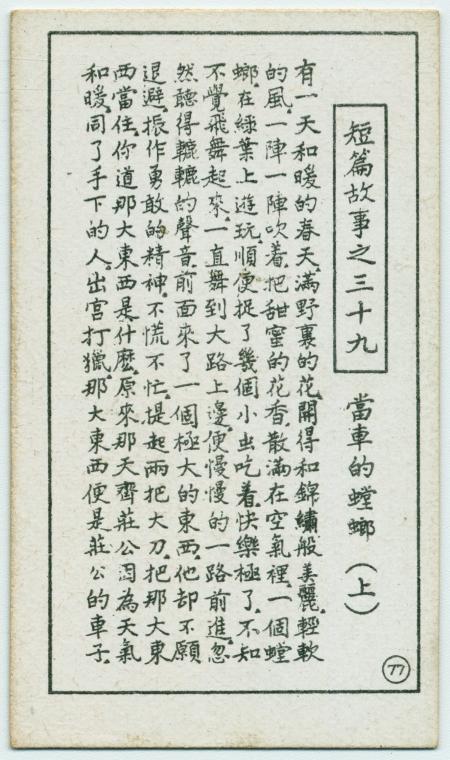 短篇故事之三十九
當車的螳螂（上）
有一天和暖的春天.滿野裏的花.開得和錦繡般美麗.輕軟
的風.一陣一陣吹着.把甜蜜的花香.散滿在空氣裡.一個螳
螂.在綠葉上遊玩.順便捉了幾個小虫吃着.快樂極了.不知
不覺.飛舞起來.一直舞到大路上邊.便慢慢的一路前進.忽
然聽得轆轆的聲音.前面來了一個極大的東西.他却不願
退避.振作勇敢的精神.不慌不忙.提起兩把大刀.把那大東
西當住.你道那大東西是什麼.原來那天齊莊公因為天氣
和暖.同了手下的人.出宮打獵.那大東西便是莊公的車子.
77